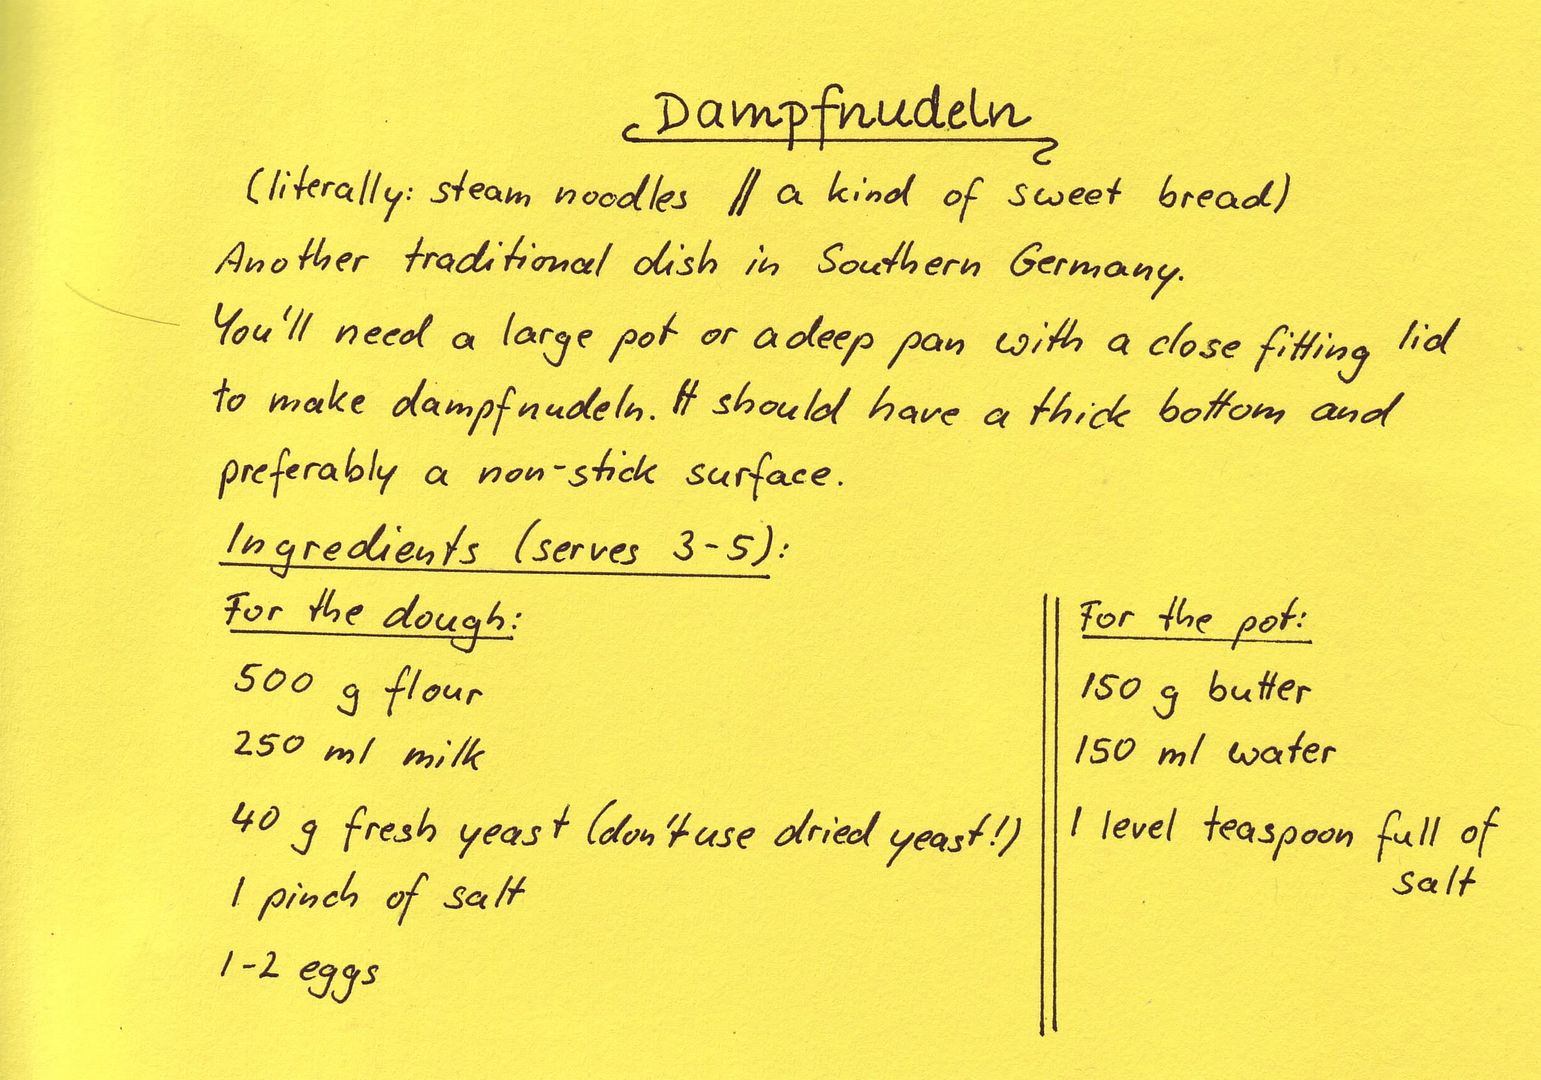 Dampfnudeln
(literally: steam noodles // a kind of sweet bread)
Another traditional dish in Southern Germany.
You'll need a large pot or a deep pan with a close fitting lid
to make dampfnudeln. It should have a thick bottom and
preferably a non-stick surface.
Ingredients (serves 3-5):
For the dough:
500 g flour
250 ml milk
40 g fresh yeast (don't use dried yeast!)
1 pinch of salt
1-2 eggs
For the pot:
150 g butter
150 ml water
1 level teaspoon full of
salt